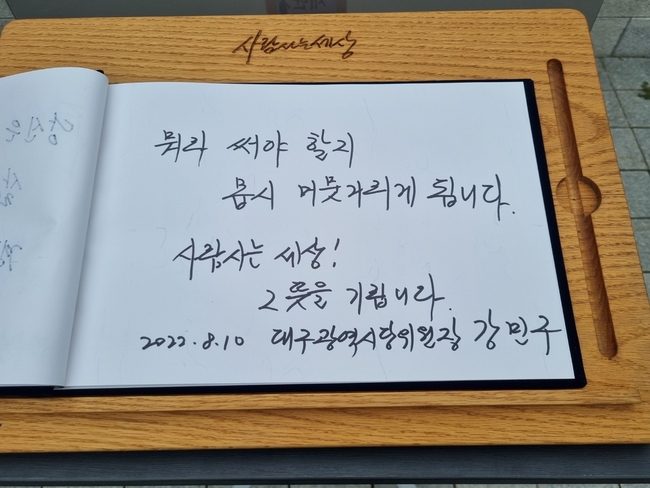 사람사는세상
뭐라 써야 할지
몹시 머뭇거리게 됩니다.
사람사는 세상!
그 뜻을 기립니다.
2022.8.10 대구광역시당위원장 강민구